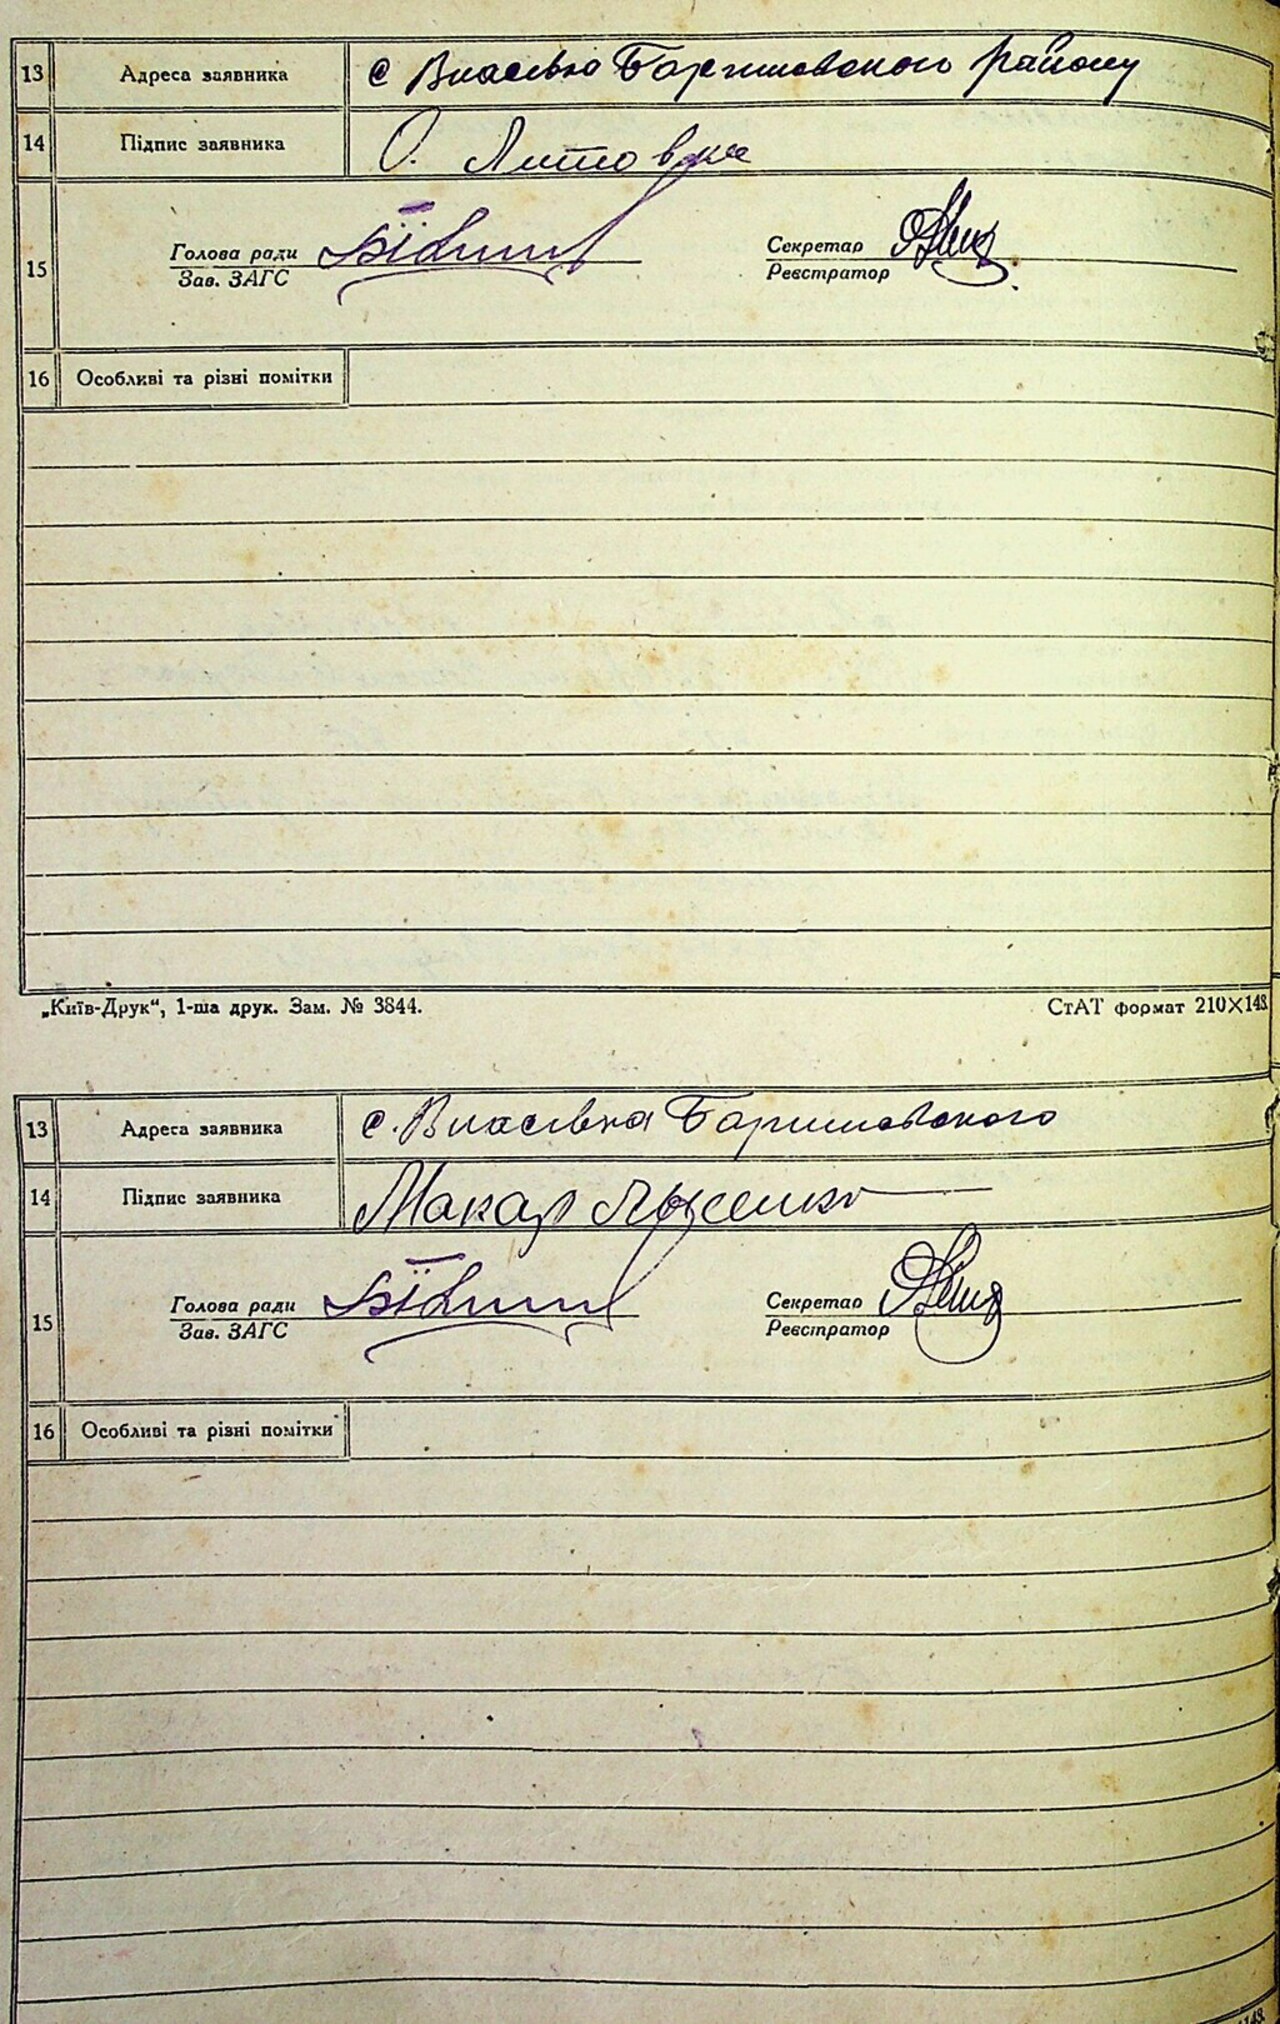 13 Адреса заявника с Власівка Баришовського району
14 Підпис заявника О. Литовка
15 Голова ради Секретар
Зав. ЗАГС Реєстратор
16 Особливі та різні помітки
„Київ-Друк“, 1-ша друк. Зам. № 3844. СтАТ формат 210X148
13 Адреса заявника с. Власівка Баришовського
14 Підпис заявника Макар
15 Голова ради Секретар
Зав. ЗАГС Реєстратор
16 Особливі та різні помітки